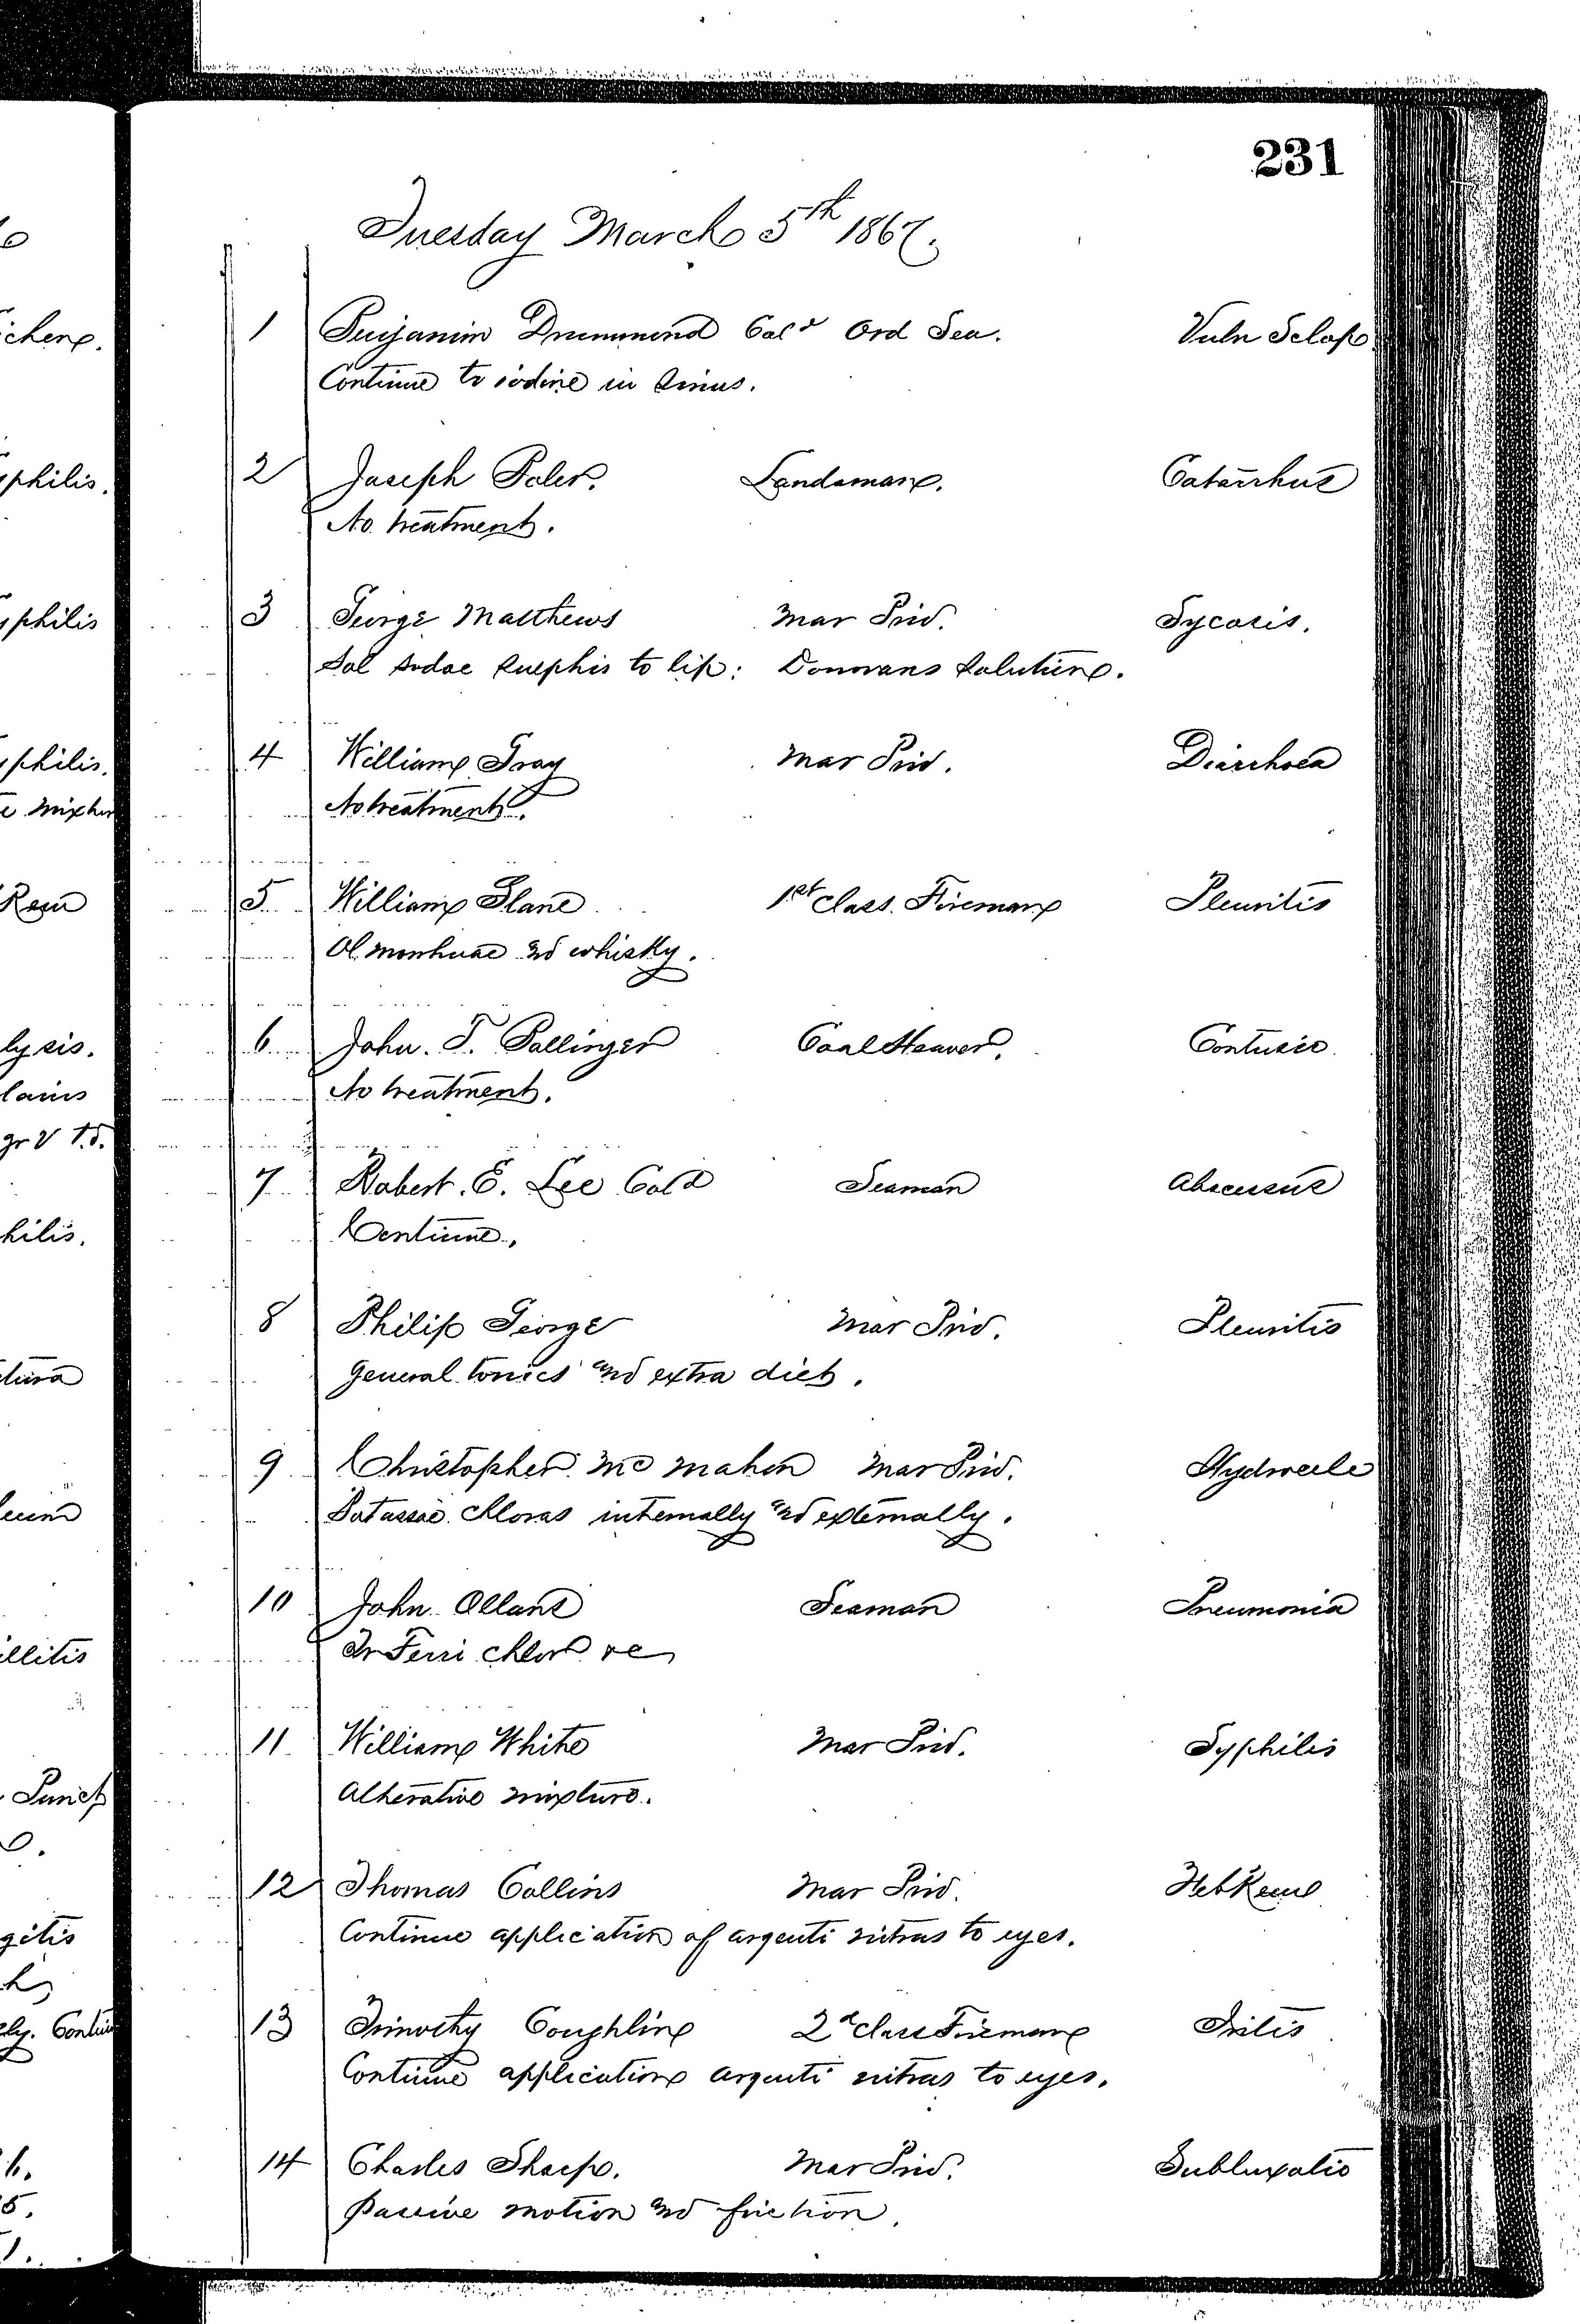 231
Tuesday March 5th 1867.
1 Benjamin Drummond Cold Ord Sea. Vuln Sclop
Continue tr iodine in sinus.
2 Joseph Poler. Landsman. Catarrhus
No treatment.
3 George Matthews Mar Priv. Sycosis.
Sol sodae sulphis to lip: Donovans solution.
4 William Gray Mar Priv. Diarrhoea
No treatment.
5 William Slane 1st Class Fireman Pleuritis
Ol. morrhuae and whisky.
6 John. T. Bollinger Coal Heaver. Contusio
No treatment.
7 Robert. E. Lee Cold Seaman Abscessus
Continue.
8 Philip George Mar Priv. Pleuritis
General tonics and extra diet.
9 Christopher Mc Mahon Mar Priv. Hydrocele
Potassae chloras internally and externally.
10 John Olland Seaman Pneumonia
Tr Ferri chlor
11 William White Mar Priv. Syphilis
Alterative mixture.
12 Thomas Collins Mar Priv. Feb Rem
Continue application of argenti nitras to eyes.
13 Timothy Coughlin 2d Class Fireman Iritis
Continue application argenti nitras to eyes.
14 Charles Sharp. Mar Priv. Subluxatio
Passive motion and friction.